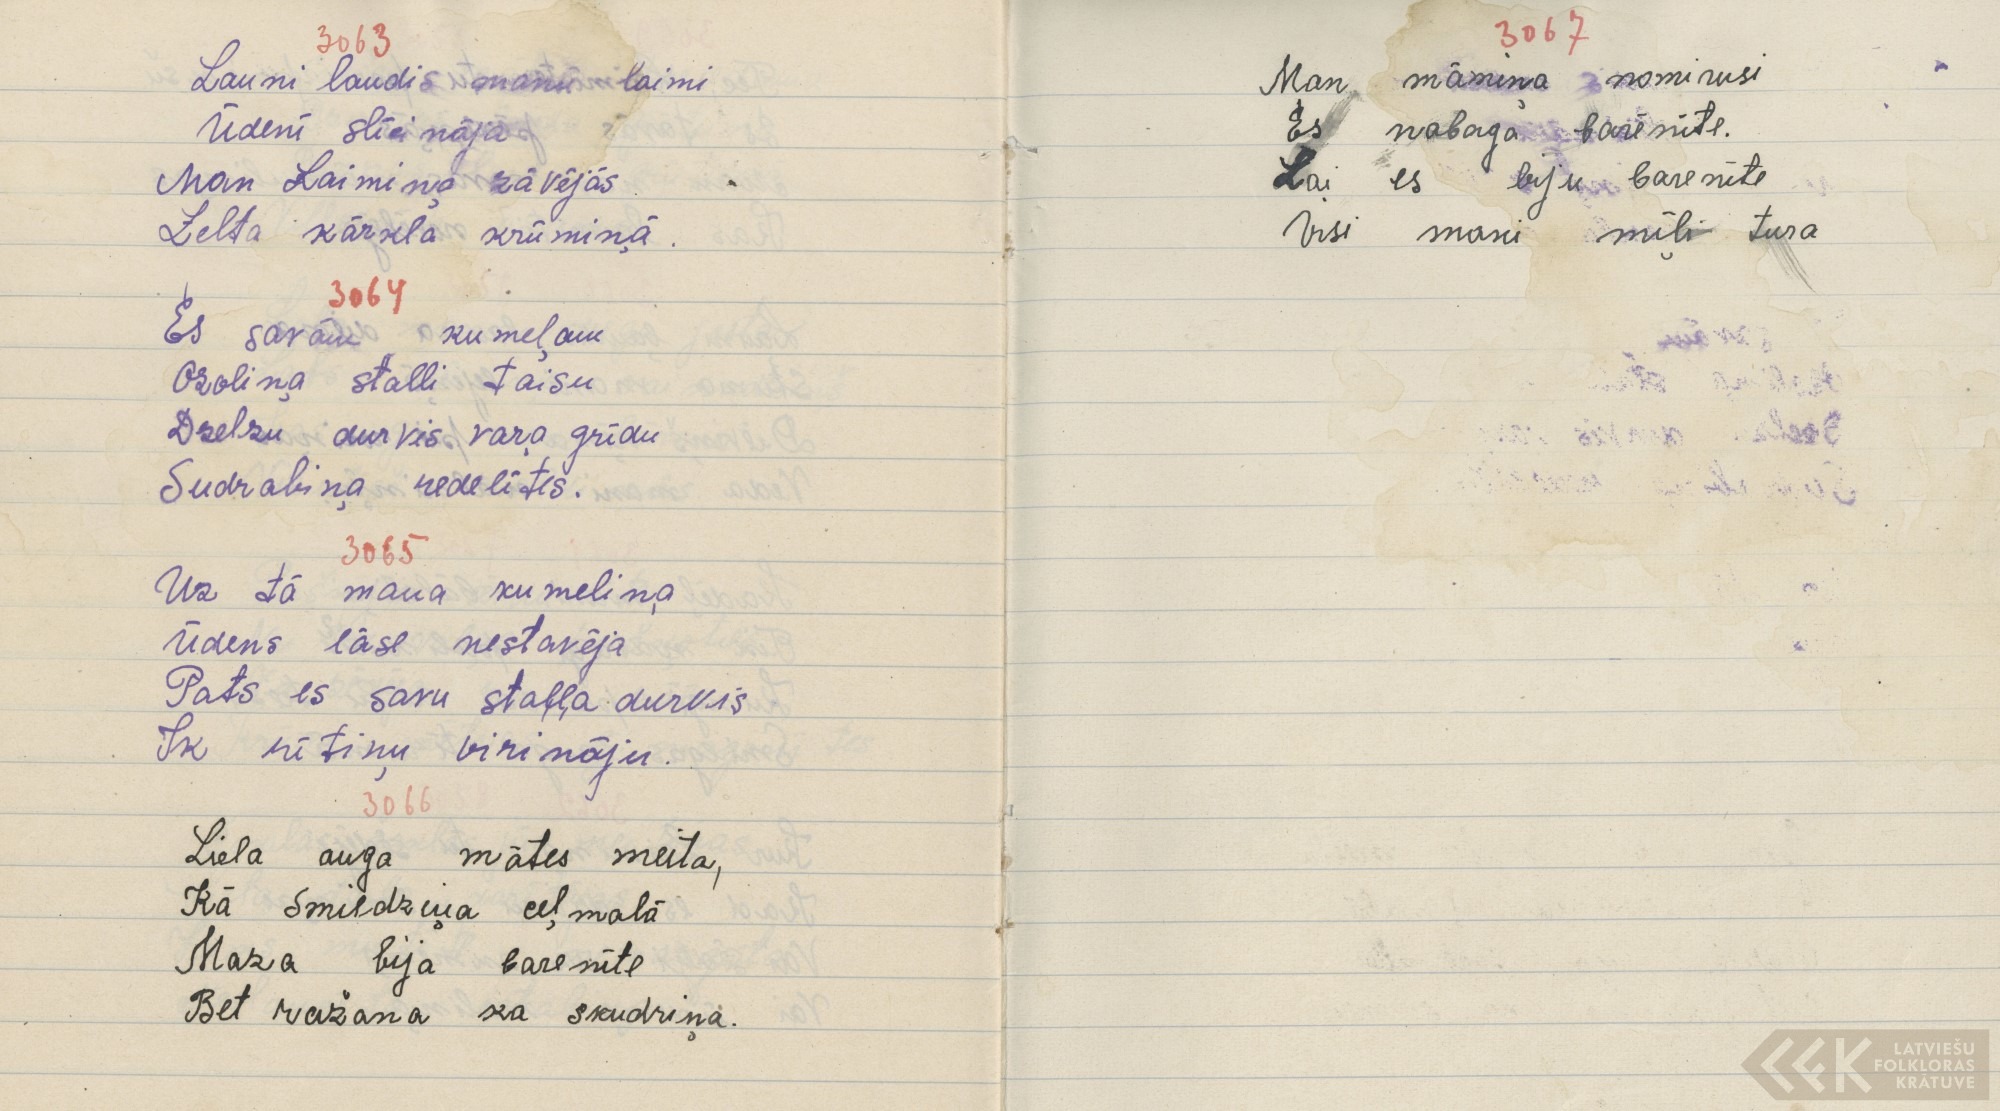 3063
Launi laudis manu laimi
Ūdenī slīcināja
Man Laimiņa žāvējās
Zelta kārkla krūmiņā.
3064
Es savam kumeļam
Ozoliņa stalli taisu
Dzelzu durvis vaŗa grīdu
Sudrabiņa redelītes.
3065
Uz tā mana kumeliņa
Ūdens lāse nestavēja
Pats es savu staļļa durvis
Ik rītiņu virināju.
3066
Liela auga mātes meita,
Kā smiedziņa ceļmalā
Maza bija barenīte
Bet ražana ka skudriņa.
3067
Man māmiņa nomirusi
Es nabaga barenīte.
Lai es biju barenīte
Visi mani mīļi tura
LATVIEŠU
FOLKLORAS
KRĀTUVE